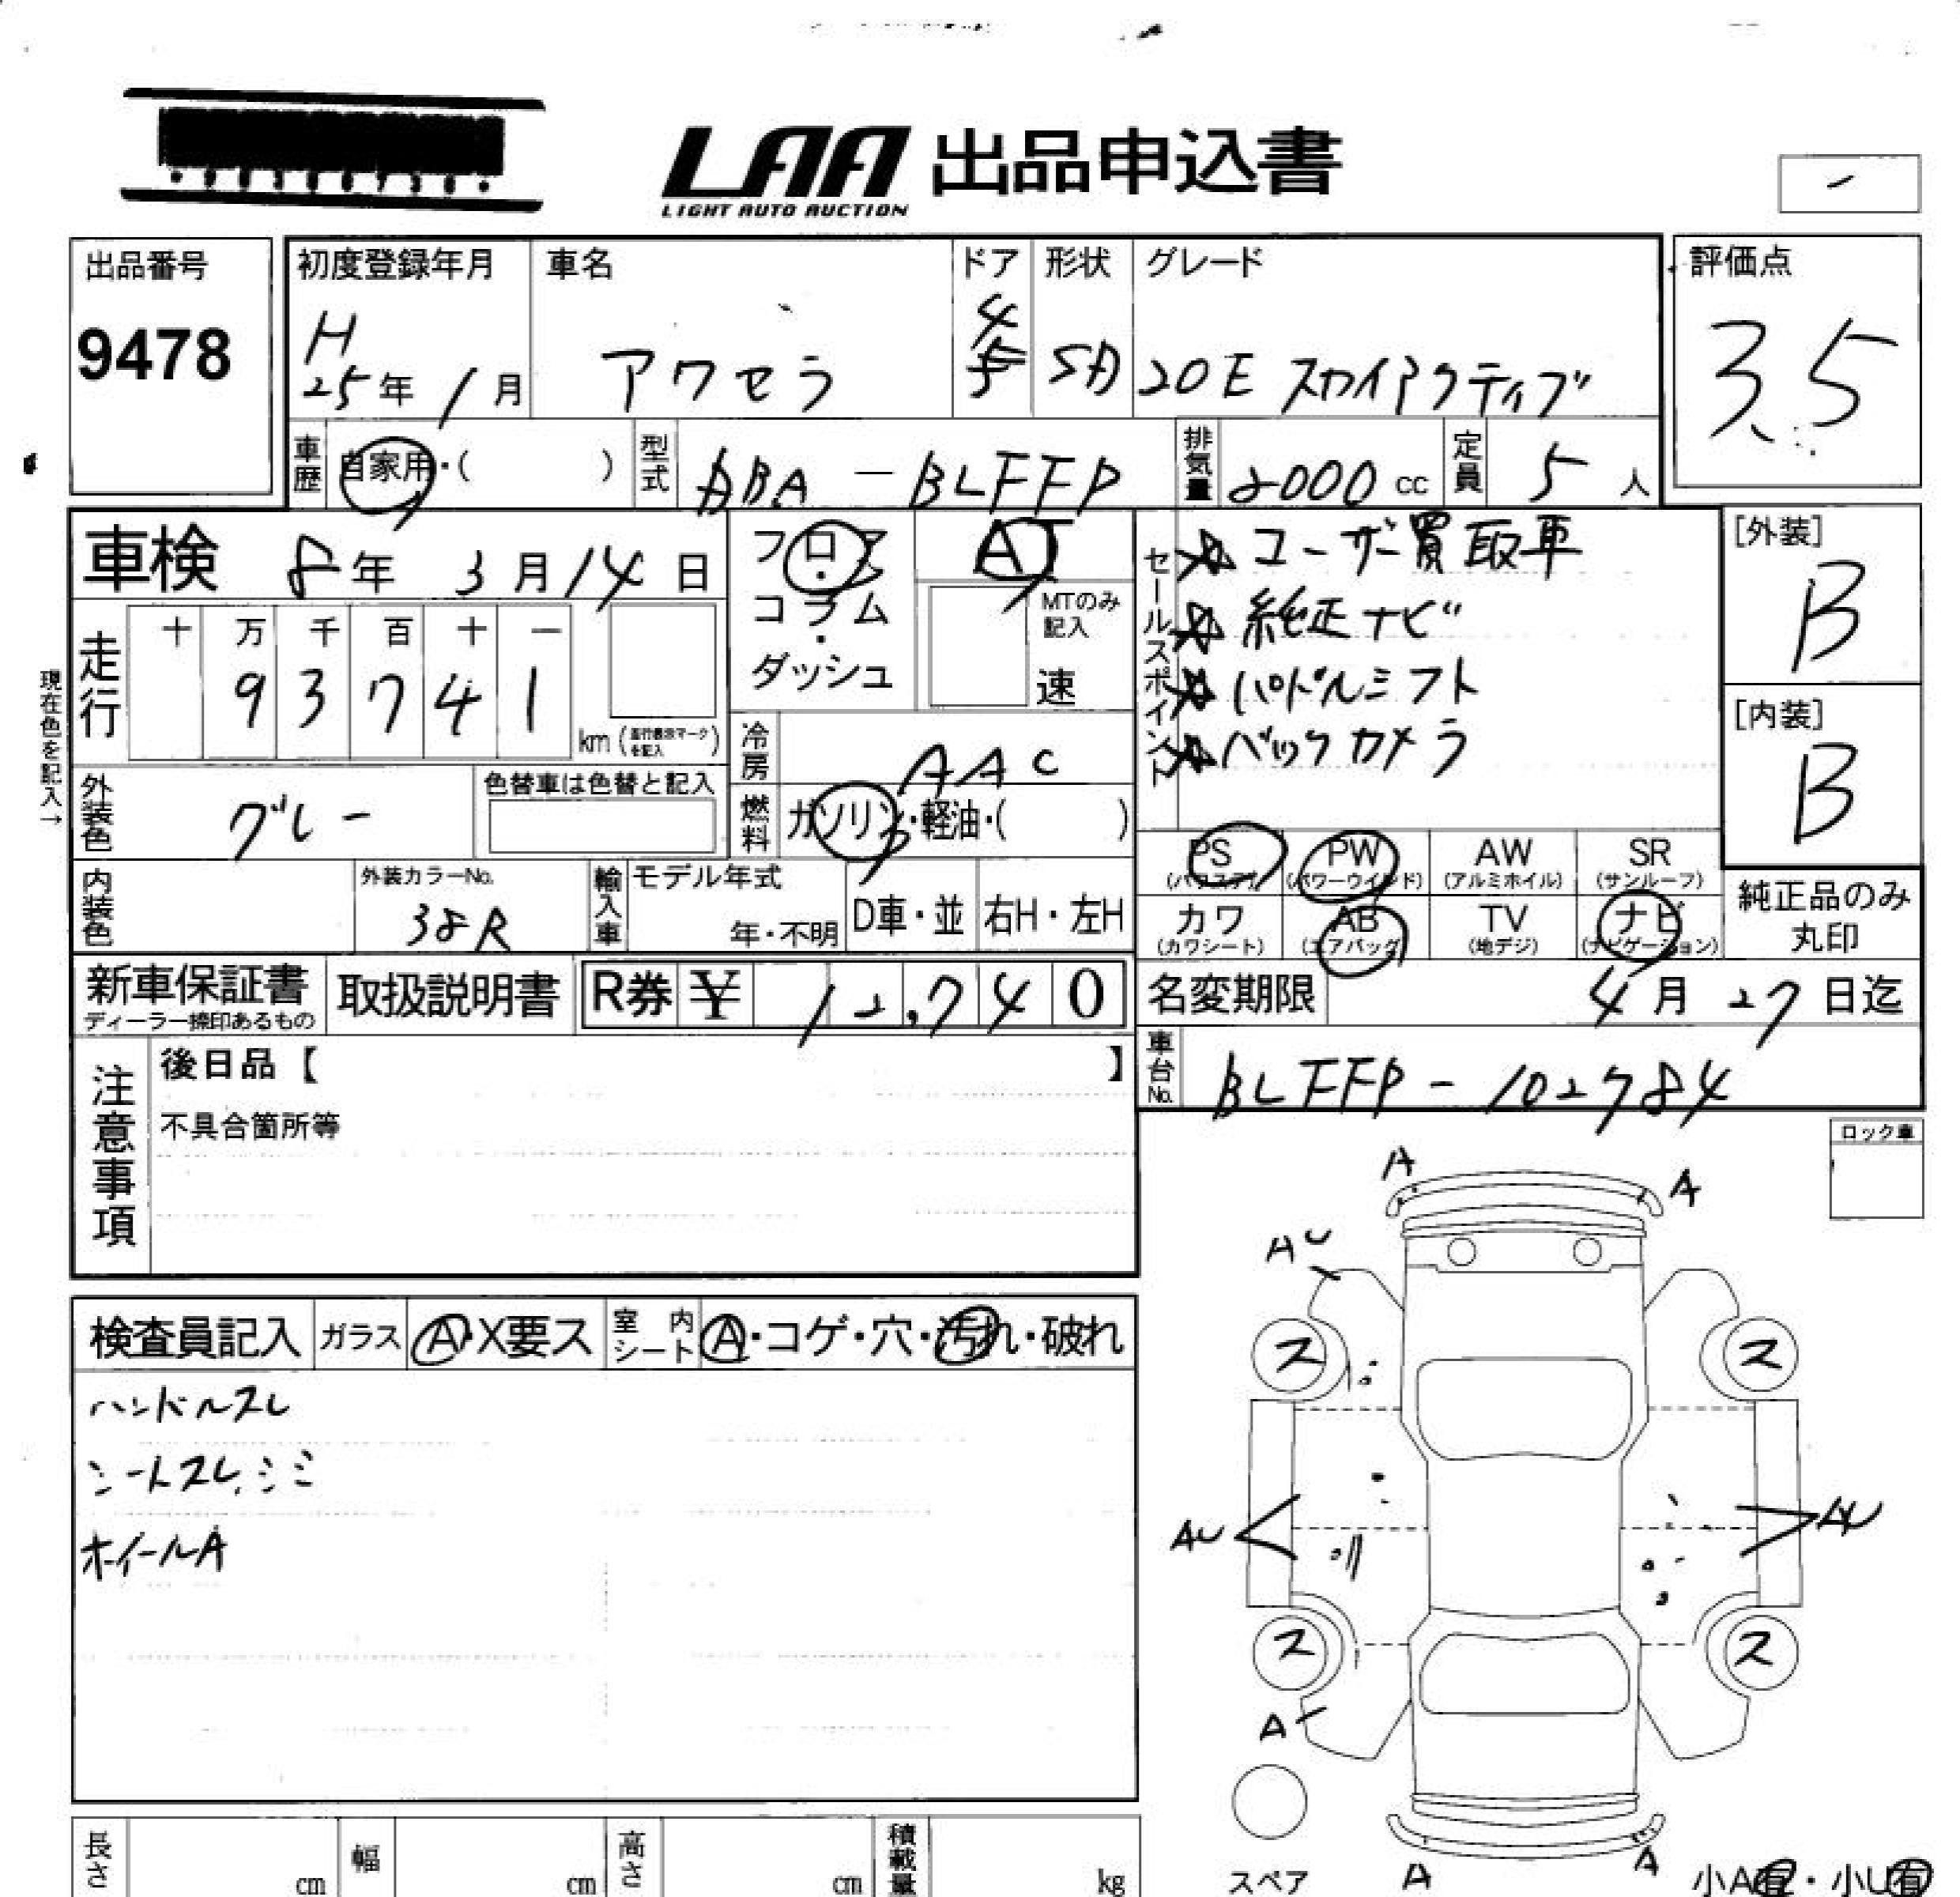 LAA 出品申込書
LIGHT AUTO AUCTION
出品番号
9478
初度登録年月
H
25年 1月
車名
アクセラ
ドア
4
5
形状
SD
グレード
20E スカイアクティブ
評価点
3.5
車歴 自家用・( )
型式 DBA-BLFFP
排気量 2000 cc
定員 5 人
車検 8年 3月 14日
現在色を記入→
走行 十 万 千 百 十 一
9 3 7 4 1 km (走行表示マークを記入)
外装色 グレー
色替車は色替と記入
内装色
外装カラーNo.
38R
輸入車 モデル年式
年・不明
D車・並 右H・左H
フロア
・
コラム
・
ダッシュ
AT
MTのみ
記入
速
冷房 AAC
燃料 ガソリン・軽油・( )
セールスポイント
☆ユーザー買取車
☆純正ナビ
☆パドルシフト
☆バックカメラ
[外装]
B
[内装]
B
PS
(パワステ)
PW
(パワーウインド)
AW
(アルミホイル)
SR
(サンルーフ)
カワ
(カワシート)
AB
(エアバッグ)
TV
(地デジ)
ナビ
(ナビゲーション)
純正品のみ
丸印
新車保証書
ディーラー捺印あるもの
取扱説明書
R券 ¥ 12,740
名変期限 4月 27日迄
車台No. BLFFP-102784
注意事項
後日品【 】
不具合箇所等
ロック車
検査員記入 ガラス A・X要ス 室内シート A・コゲ・穴・汚れ・破れ
ハンドルスレ
シートスレ,シミ
ホイールA
A
A
AU
ス
ス
AU
AU
ス
ス
A
スペア
A
A
小A有・小U有
長さ cm
幅 cm
高さ cm
積載量 kg